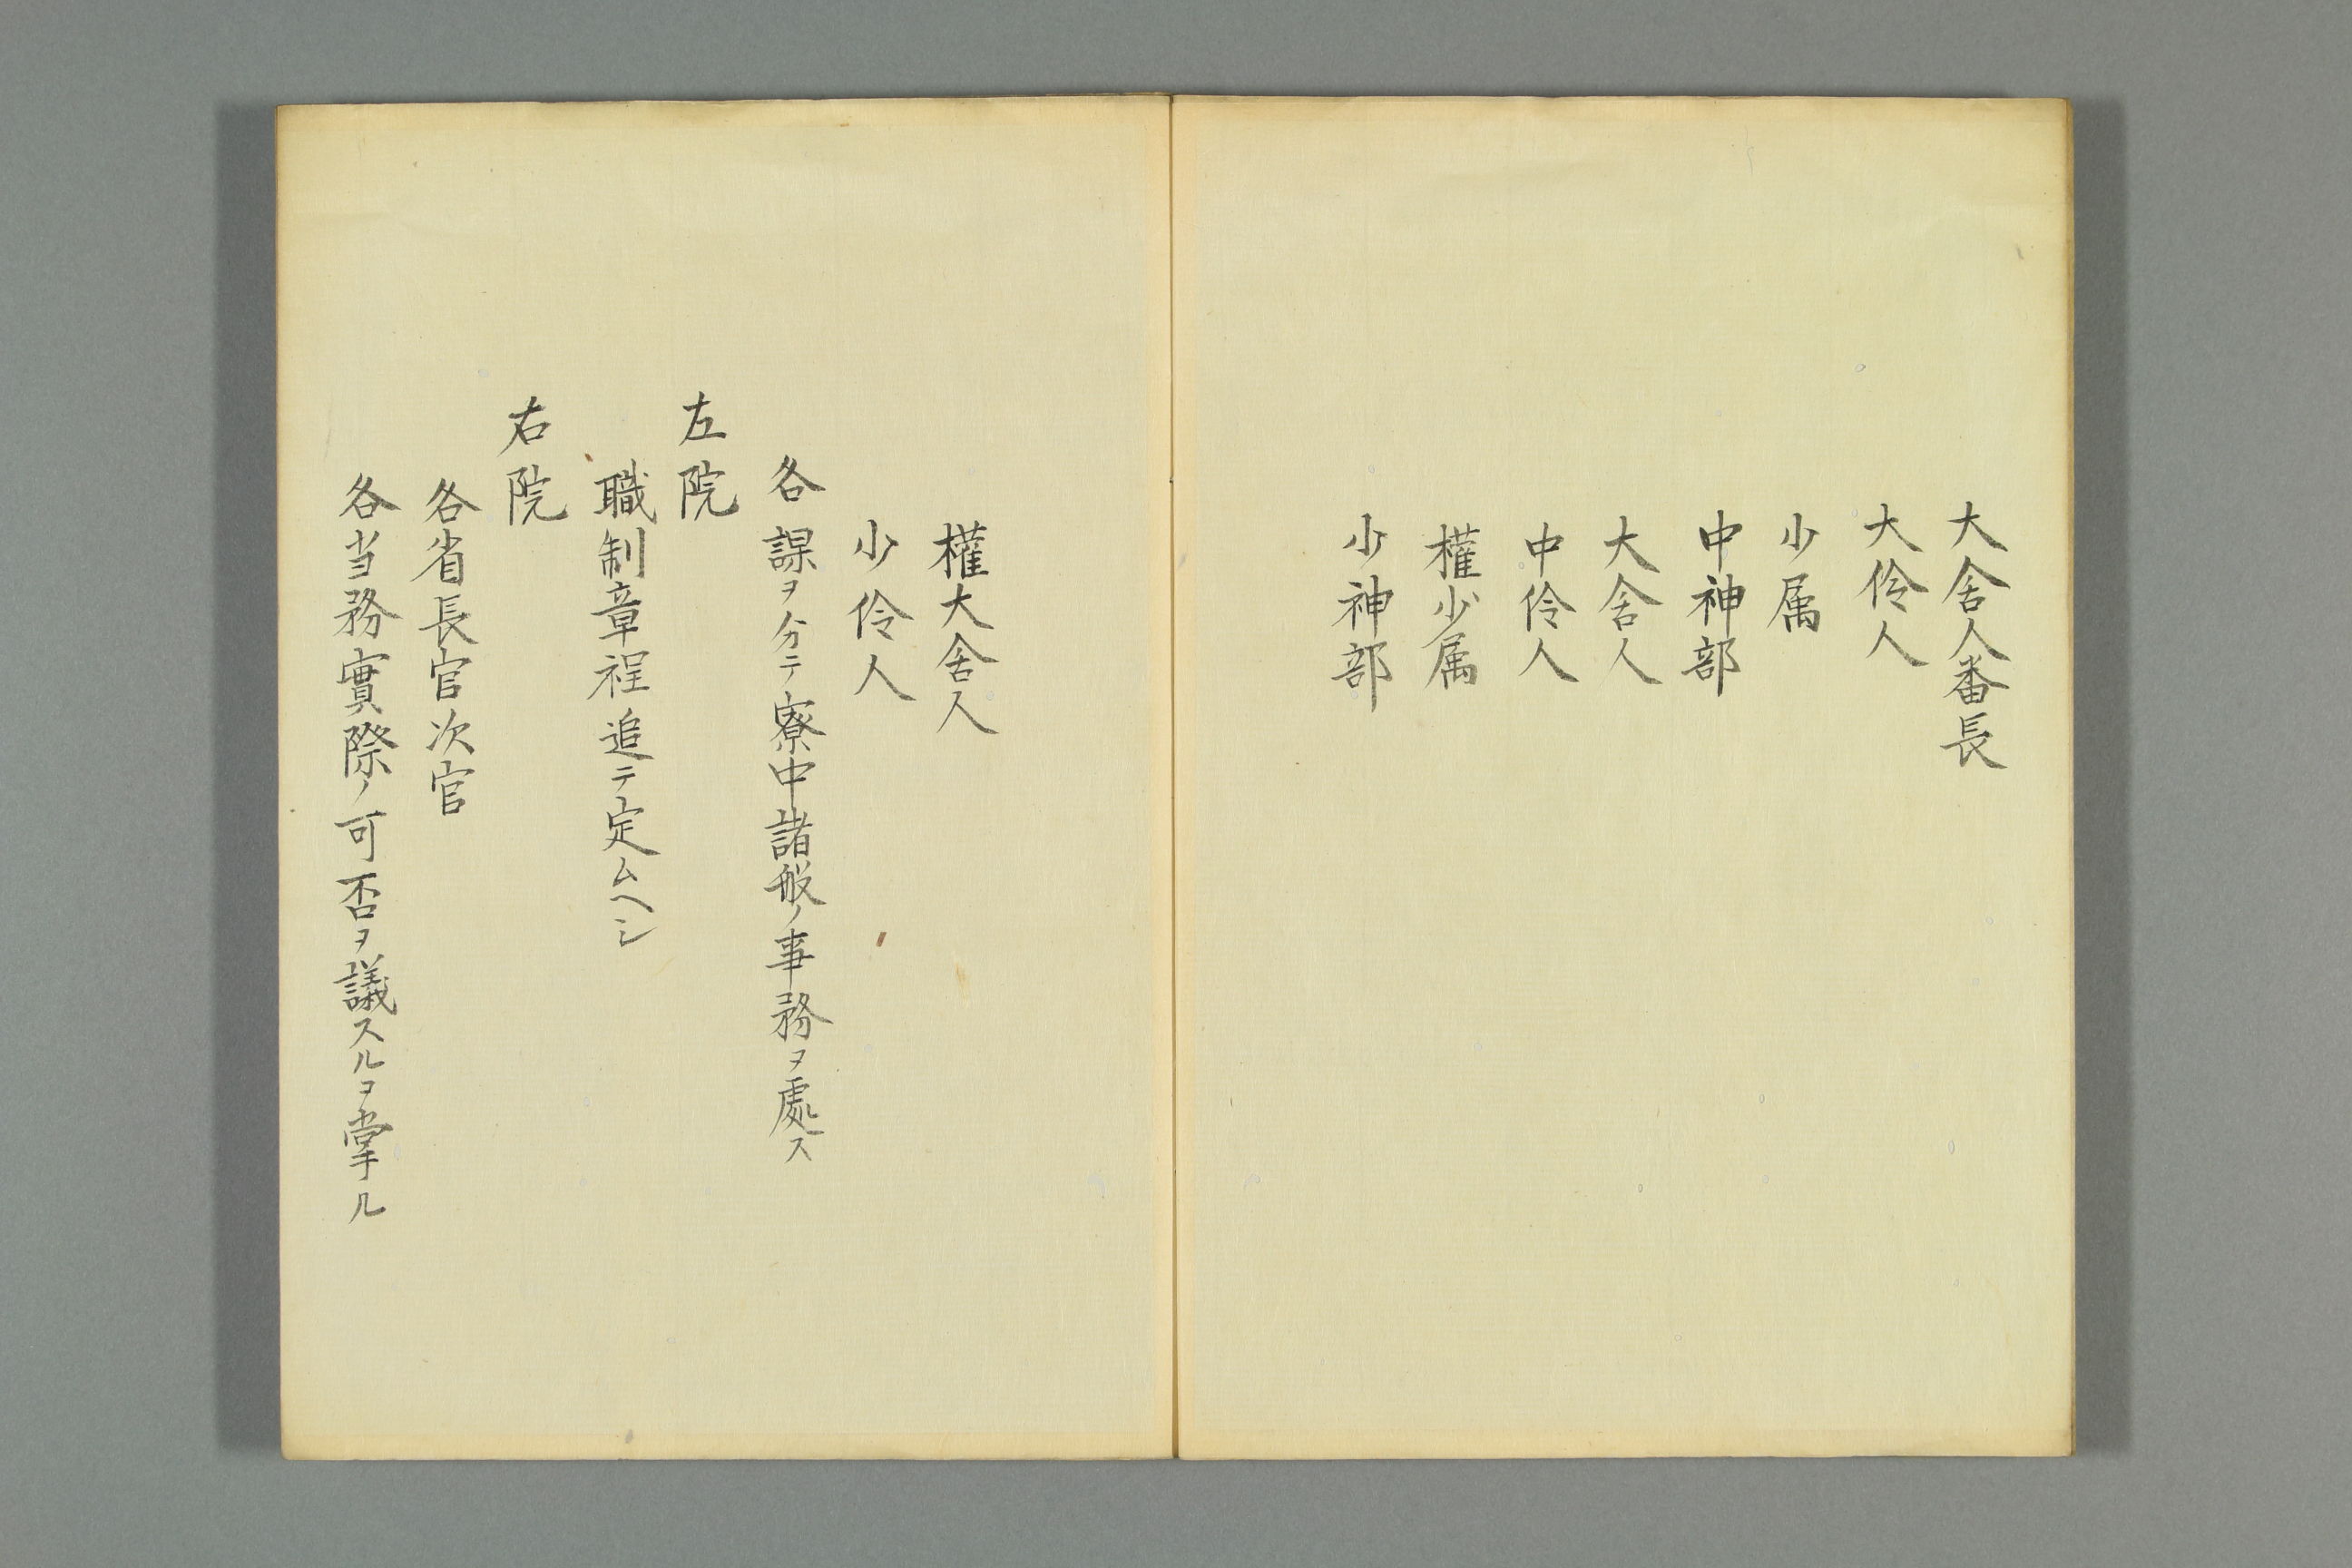 大舎人番長
大伶人
少属
中神部
大舎人
中伶人
權少属
少神部
權大舎人
少伶人
各課ヲ分テ寮中諸般ノ事務ヲ處ス
左院
職制章程追テ定ムヘシ
右院
各省長官次官
各当務實際ノ可否ヲ議スルヲ掌ル